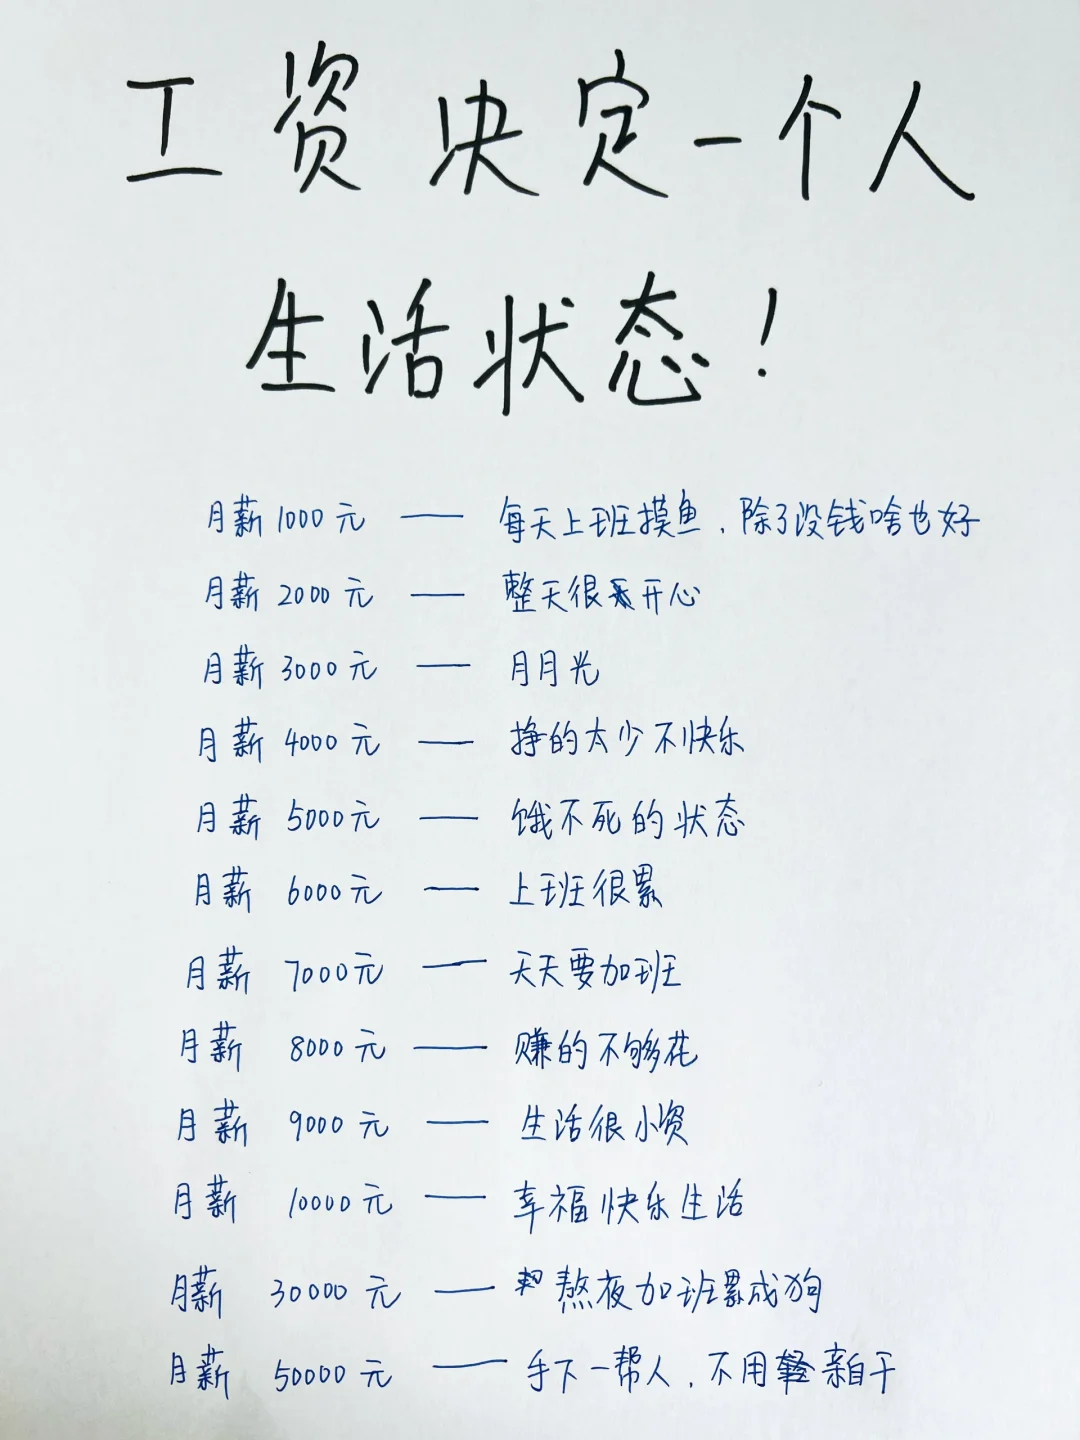 工资决定一个人
生活状态！
月薪1000元 —— 每天上班摸鱼，除了没钱啥也好
月薪2000元 —— 整天很开心
月薪3000元 —— 月月光
月薪4000元 —— 挣的太少不快乐
月薪5000元 —— 饿不死的状态
月薪6000元 —— 上班很累
月薪7000元 —— 天天要加班
月薪8000元 —— 赚的不够花
月薪9000元 —— 生活很小资
月薪10000元 —— 幸福快乐生活
月薪30000元 —— 熬夜加班累成狗
月薪50000元 —— 手下一帮人，不用亲自干